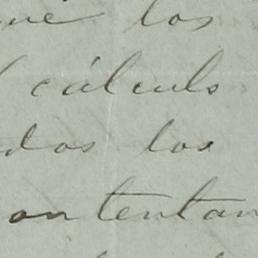 que los
cálculs
dos los
ontentan